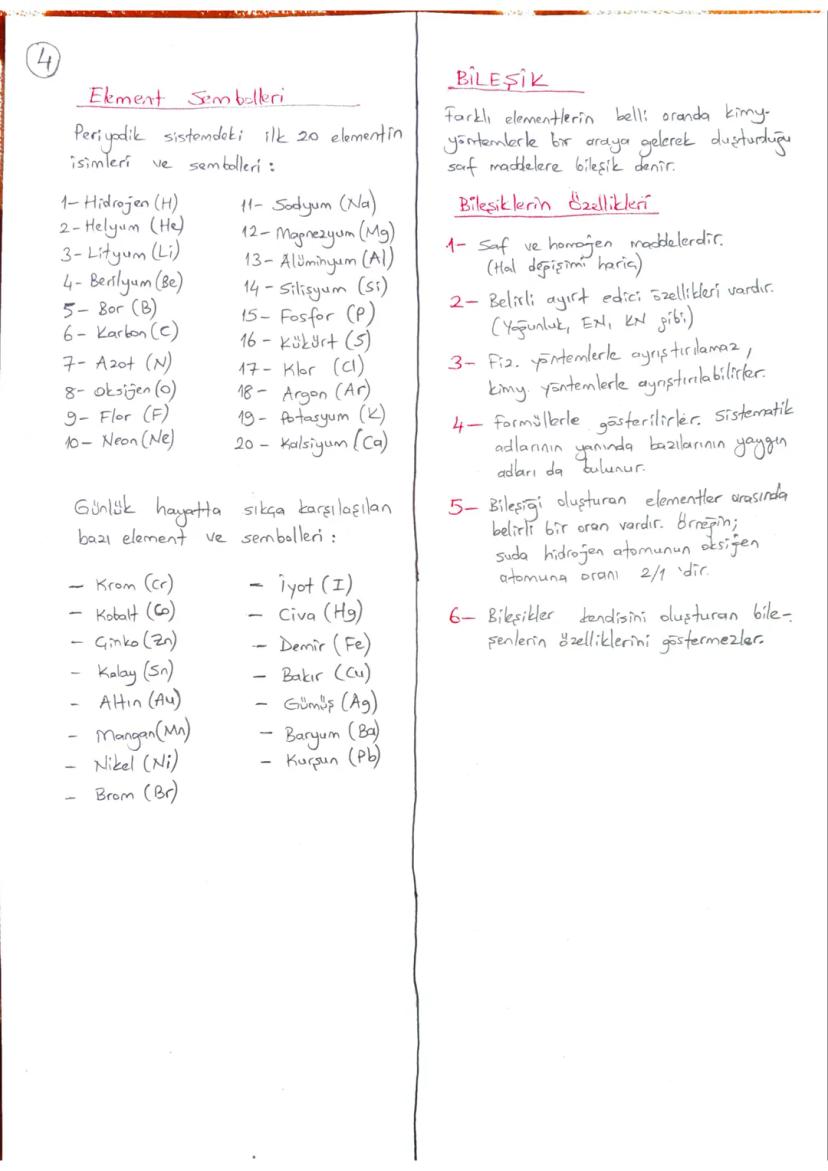 4
Element Sembolleri
Periyodik sistemdeki ilk 20 elementin
isimleri ve sembolleri :
1- Hidrojen (H)
2- Helyum (He)
3- Lityum (Li)
4- Berilyum (Be)
5- Bor (B)
6- Karbon (C)
7- Azot (N)
8- Oksijen (O)
9- Flor (F)
10- Neon (Ne)
11- Sodyum (Na)
12- Magnezyum (Mg)
13- Alüminyum (Al)
14- Silisyum (Si)
15- Fosfor (P)
16- Kükürt (S)
17- Klor (Cl)
18- Argon (Ar)
19- Potasyum (K)
20- Kalsiyum (Ca)
Günlük hayatta sıkça karşılaşılan
bazı element ve sembolleri :
- Krom (Cr)
- Kobalt (Co)
- Çinko (Zn)
- Kalay (Sn)
- Altın (Au)
- Mangan (Mn)
- Nikel (Ni)
- Brom (Br)
- İyot (I)
- Civa (Hg)
- Demir (Fe)
- Bakır (Cu)
- Gümüş (Ag)
- Baryum (Ba)
- Kurşun (Pb)
BİLEŞİK
Farklı elementlerin belli oranda kimy-
yöntemlerle bir araya gelerek oluşturduğu
saf maddelere bileşik denir.
Bileşiklerin Özellikleri
1- Saf ve homojen maddelerdir.
(Hal değişimi hariç)
2- Belirli ayırt edici özellikleri vardır.
(Yoğunluk, EN, KN gibi)
3- Fiz. yöntemlerle ayrıştırılamaz,
kimy. yöntemlerle ayrıştırılabilirler.
4- Formüllerle gösterilirler. Sistematik
adlarının yanında bazılarının yaygın
adları da bulunur.
5- Bileşiği oluşturan elementler arasında
belirli bir oran vardır. Örneğin;
suda hidrojen atomunun oksijen
atomuna oranı 2/1 'dir.
6- Bileşikler kendisini oluşturan bile-
şenlerin özelliklerini göstermezler.